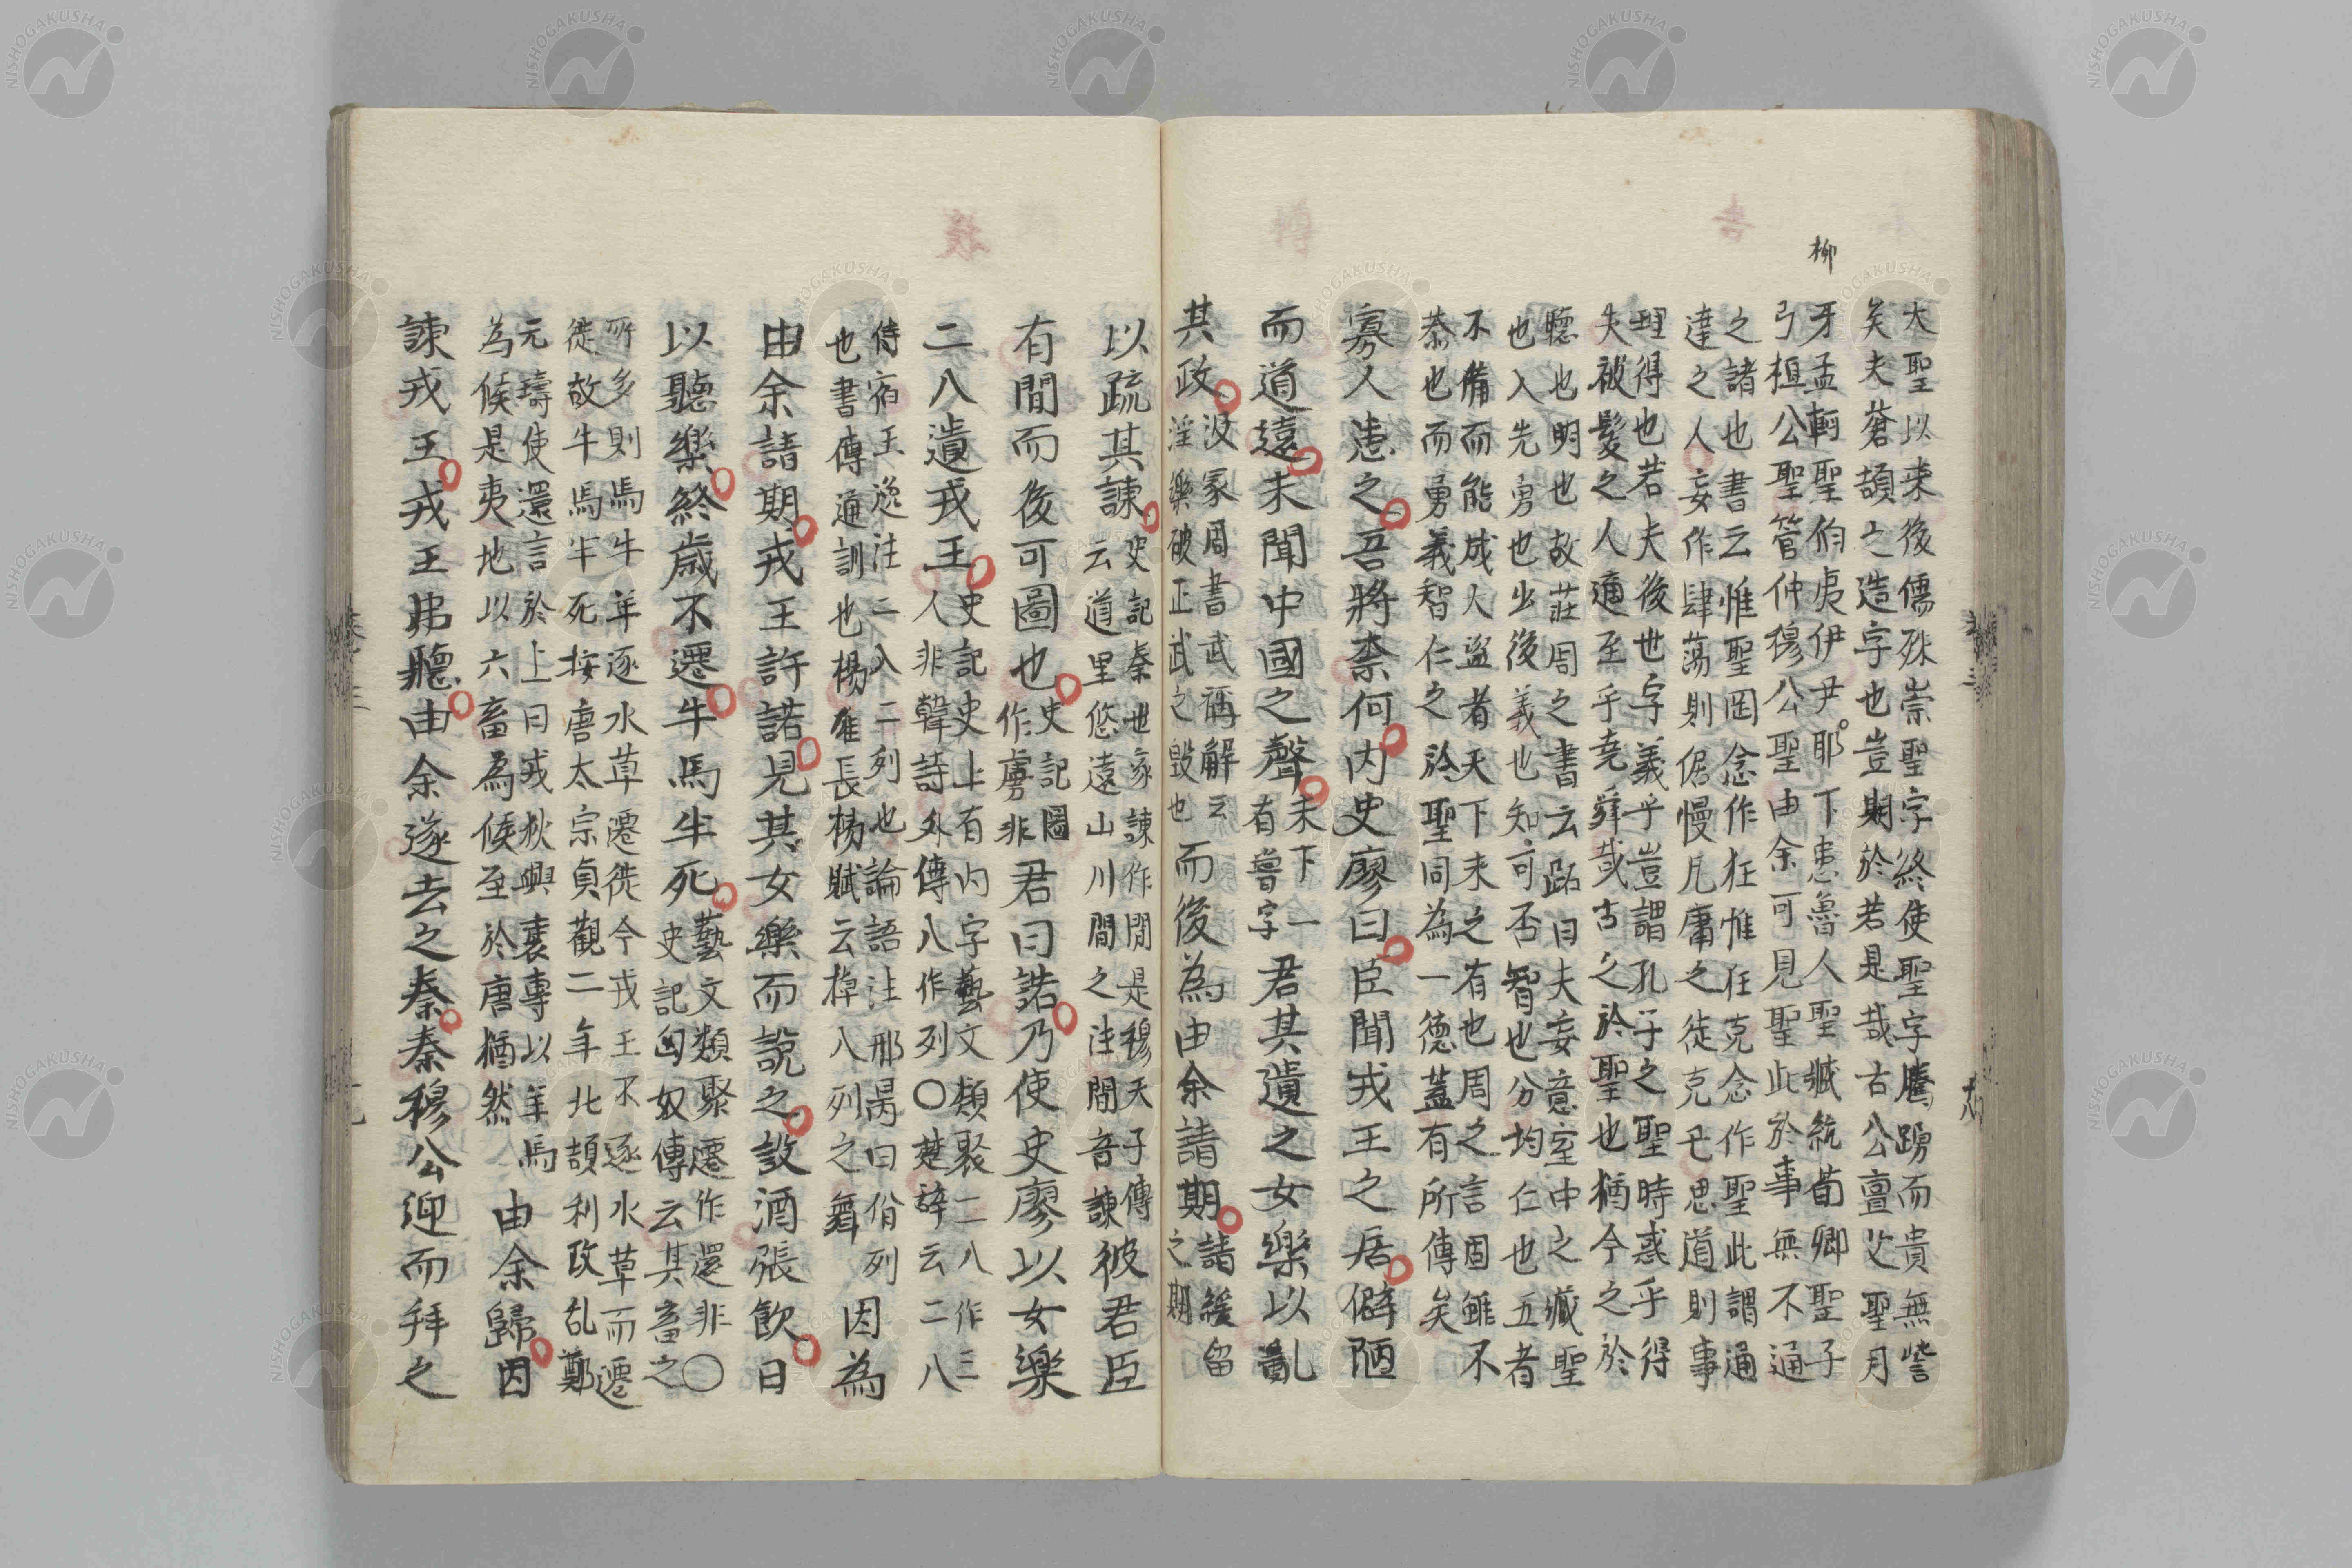 柳
大聖以来後儒殊崇聖字終使聖字騰踴而貴無訾
矣夫蒼頡之造字也豈期於若是哉古公亶父聖月
牙孟軻聖伯夷伊尹耶下恵魯人聖臧統荀卿聖子
弓桓公聖管仲穆公聖由余可見聖此於事無不通
之諸也書云惟聖罔念作狂惟狂克念作聖此謂通
達之人妄作肆蕩則倨慢凡庸之徒克思道則事
理得也若夫後世字義乎豈謂孔子之聖時惑乎得
失被髪之人適至乎堯舜哉古之於聖也猶今之於
聴也明也故荘周之書云跖曰夫妄意室中之蔵聖
也入先勇也出後義也知可否智也分均仁也五者
不備而能成大盗者天下未之有也周之言固雖不
恭也而勇義智仁之於聖同為一徳蓋有所傳矣
寡人患之吾將柰何内史廖曰臣聞戎王之居僻陋
而道遠未聞中國之聲未下一有魯字君其遺之女樂以亂
其政汲冢周書武稱解云淫樂破正武之毀也而後為由余請期請緩留之期
以疏其諫史記秦世家諫作間是穆天子傳云道里悠遠山川間之注間音諫彼君臣
有間而後可圖也史記圖作虜非君曰諾乃使史廖以女樂
二八遺戎王史記史上有内字藝文類聚二八作三人非韓詩外傳八作列〇楚辞云二八
侍宿王逸注二八二列也論語注邢昺曰佾列也書傳通訓也楊雄長楊賦云掉八列之舞因為
由余請期戎王許諾見其女樂而説之設酒張飲日
以聽樂終歳不遷牛馬半死藝文類聚遷作還非〇史記匈奴傳云其畜之
所多則馬牛羊逐水草遷徙今戎王不逐水草而遷徙故牛馬半死按唐太宗貞觀二年北頡利政乱鄭
元璹使還言於上曰戎狄興衰專以羊馬為候是夷地以六畜為候至於唐猶然由余歸因
諫戎王戎王弗聽由余遂去之秦秦穆公迎而拜之